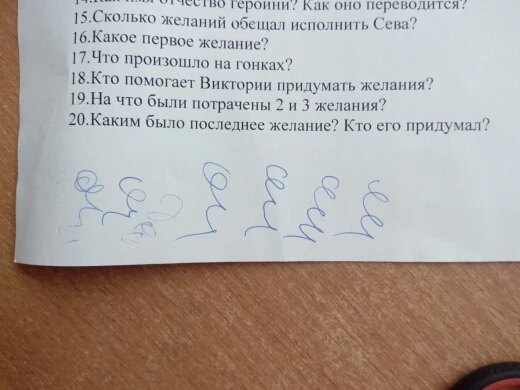 14.Как имя отчество героини? Как оно переводится?
15.Сколько желаний обещал исполнить Сева?
16.Какое первое желание?
17.Что произошло на гонках?
18.Кто помогает Виктории придумать желания?
19.На что были потрачены 2 и 3 желания?
20.Каким было последнее желание? Кто его придумал?